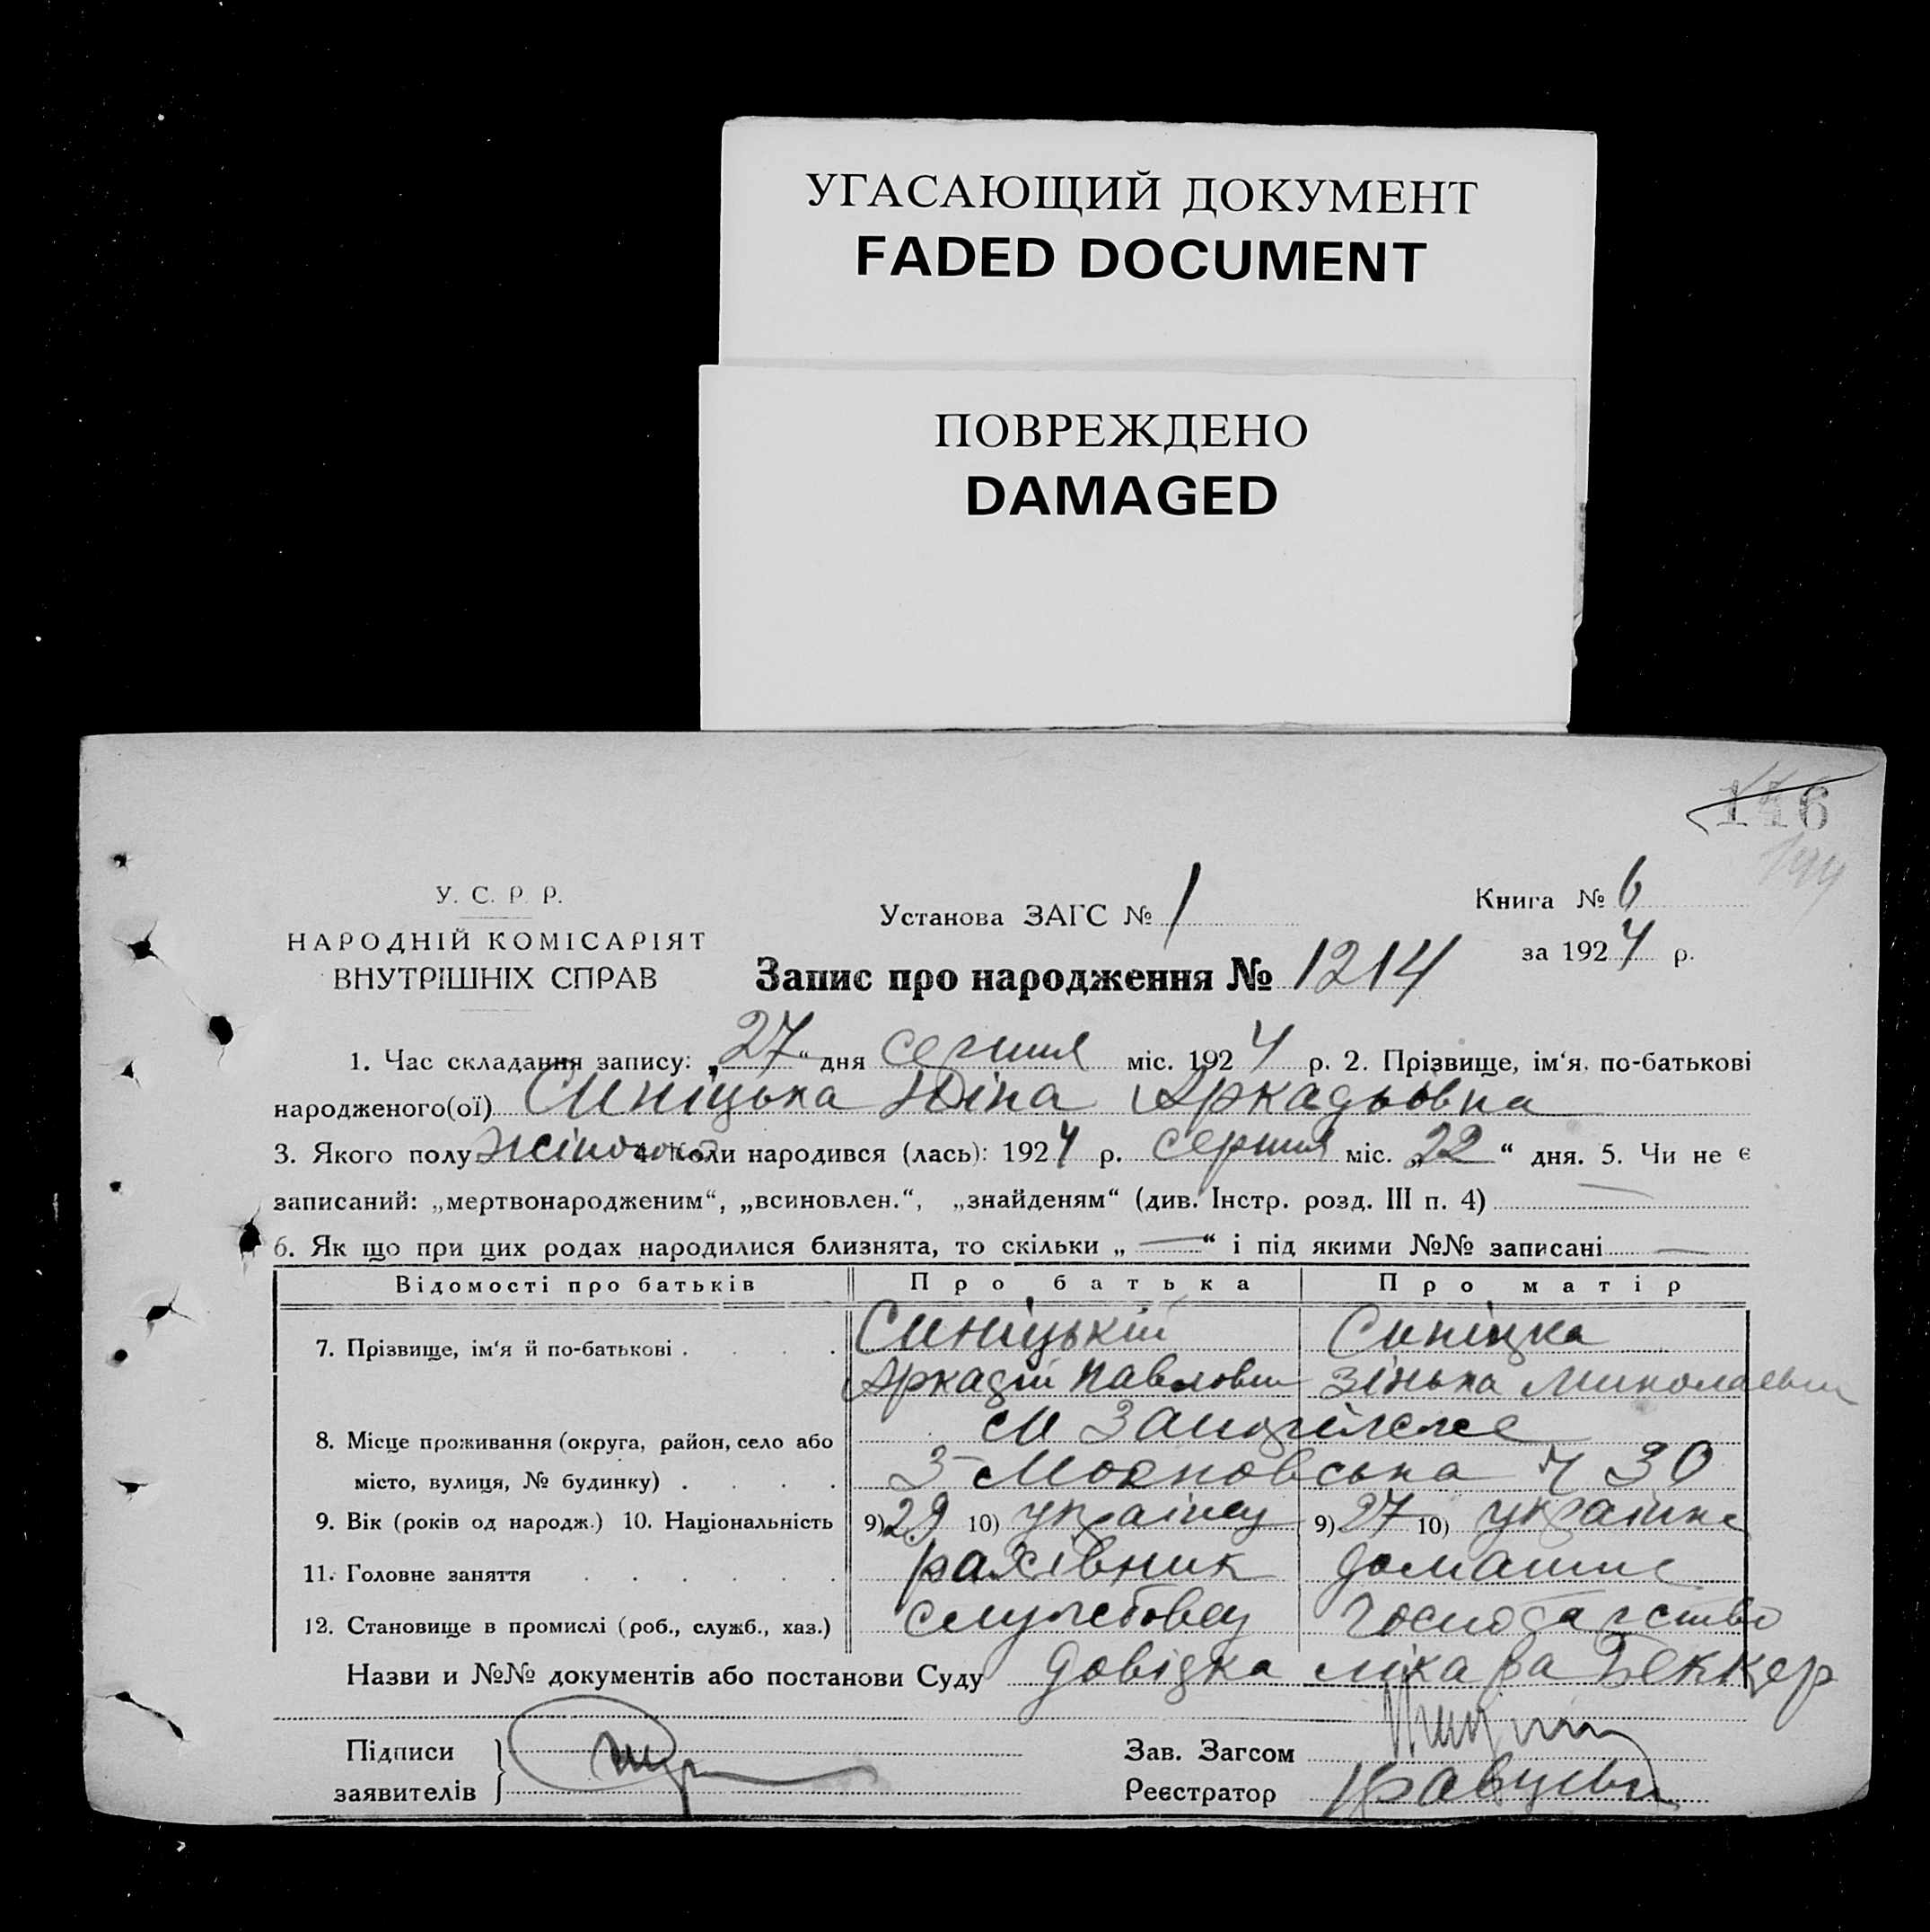 УГАСАЮЩИЙ ДОКУМЕНТ
FADED DOCUMENT
ПОВРЕЖДЕНО
DAMAGED
146
У. С. Р. Р.
НАРОДНІЙ КОМІСАРІЯТ
ВНУТРІШНІХ СПРАВ
Установа ЗАГС № 1
Книга № 6
за 1924 р.
Запис про народження № 1214
1. Час складання запису: „27“ дня серпня міс. 1924 р. 2. Прізвище, ім‘я, по-батькові
народженого(ої) Синіцька Ніна Аркадьовна
3. Якого полу жіночого 4. Коли народився (лась): 1924 р. серпня міс. „22“ дня. 5. Чи не є
записаний: „мертвонародженим“, „всиновлен.“, „знайденям“ (див. Інстр. розд. III п. 4) —
6. Як що при цих родах народилися близнята, то скільки „—“ і під якими №№ записані —
Відомості про батьків Про батька Про матір
7. Прізвище, ім‘я й по-батькові . . . . Синіцькій Синіцка
Аркадій Павлович Зінька Миколаевна
8. Місце проживання (округа, район, село або
місто, вулиця, № будинку) . . . . 30
9. Вік (років од народж.) 10. Національність 9) 29 10) українец 9) 27 10) українка
11. Головне заняття . . . . . . рахівник домашне
12. Становище в промислі (роб., служб., хаз.) службовец господарство
Назви и №№ документів або постанови Суду довідка лікара Беккер
Підписи
заявителів
Зав. Загсом
Реєстратор